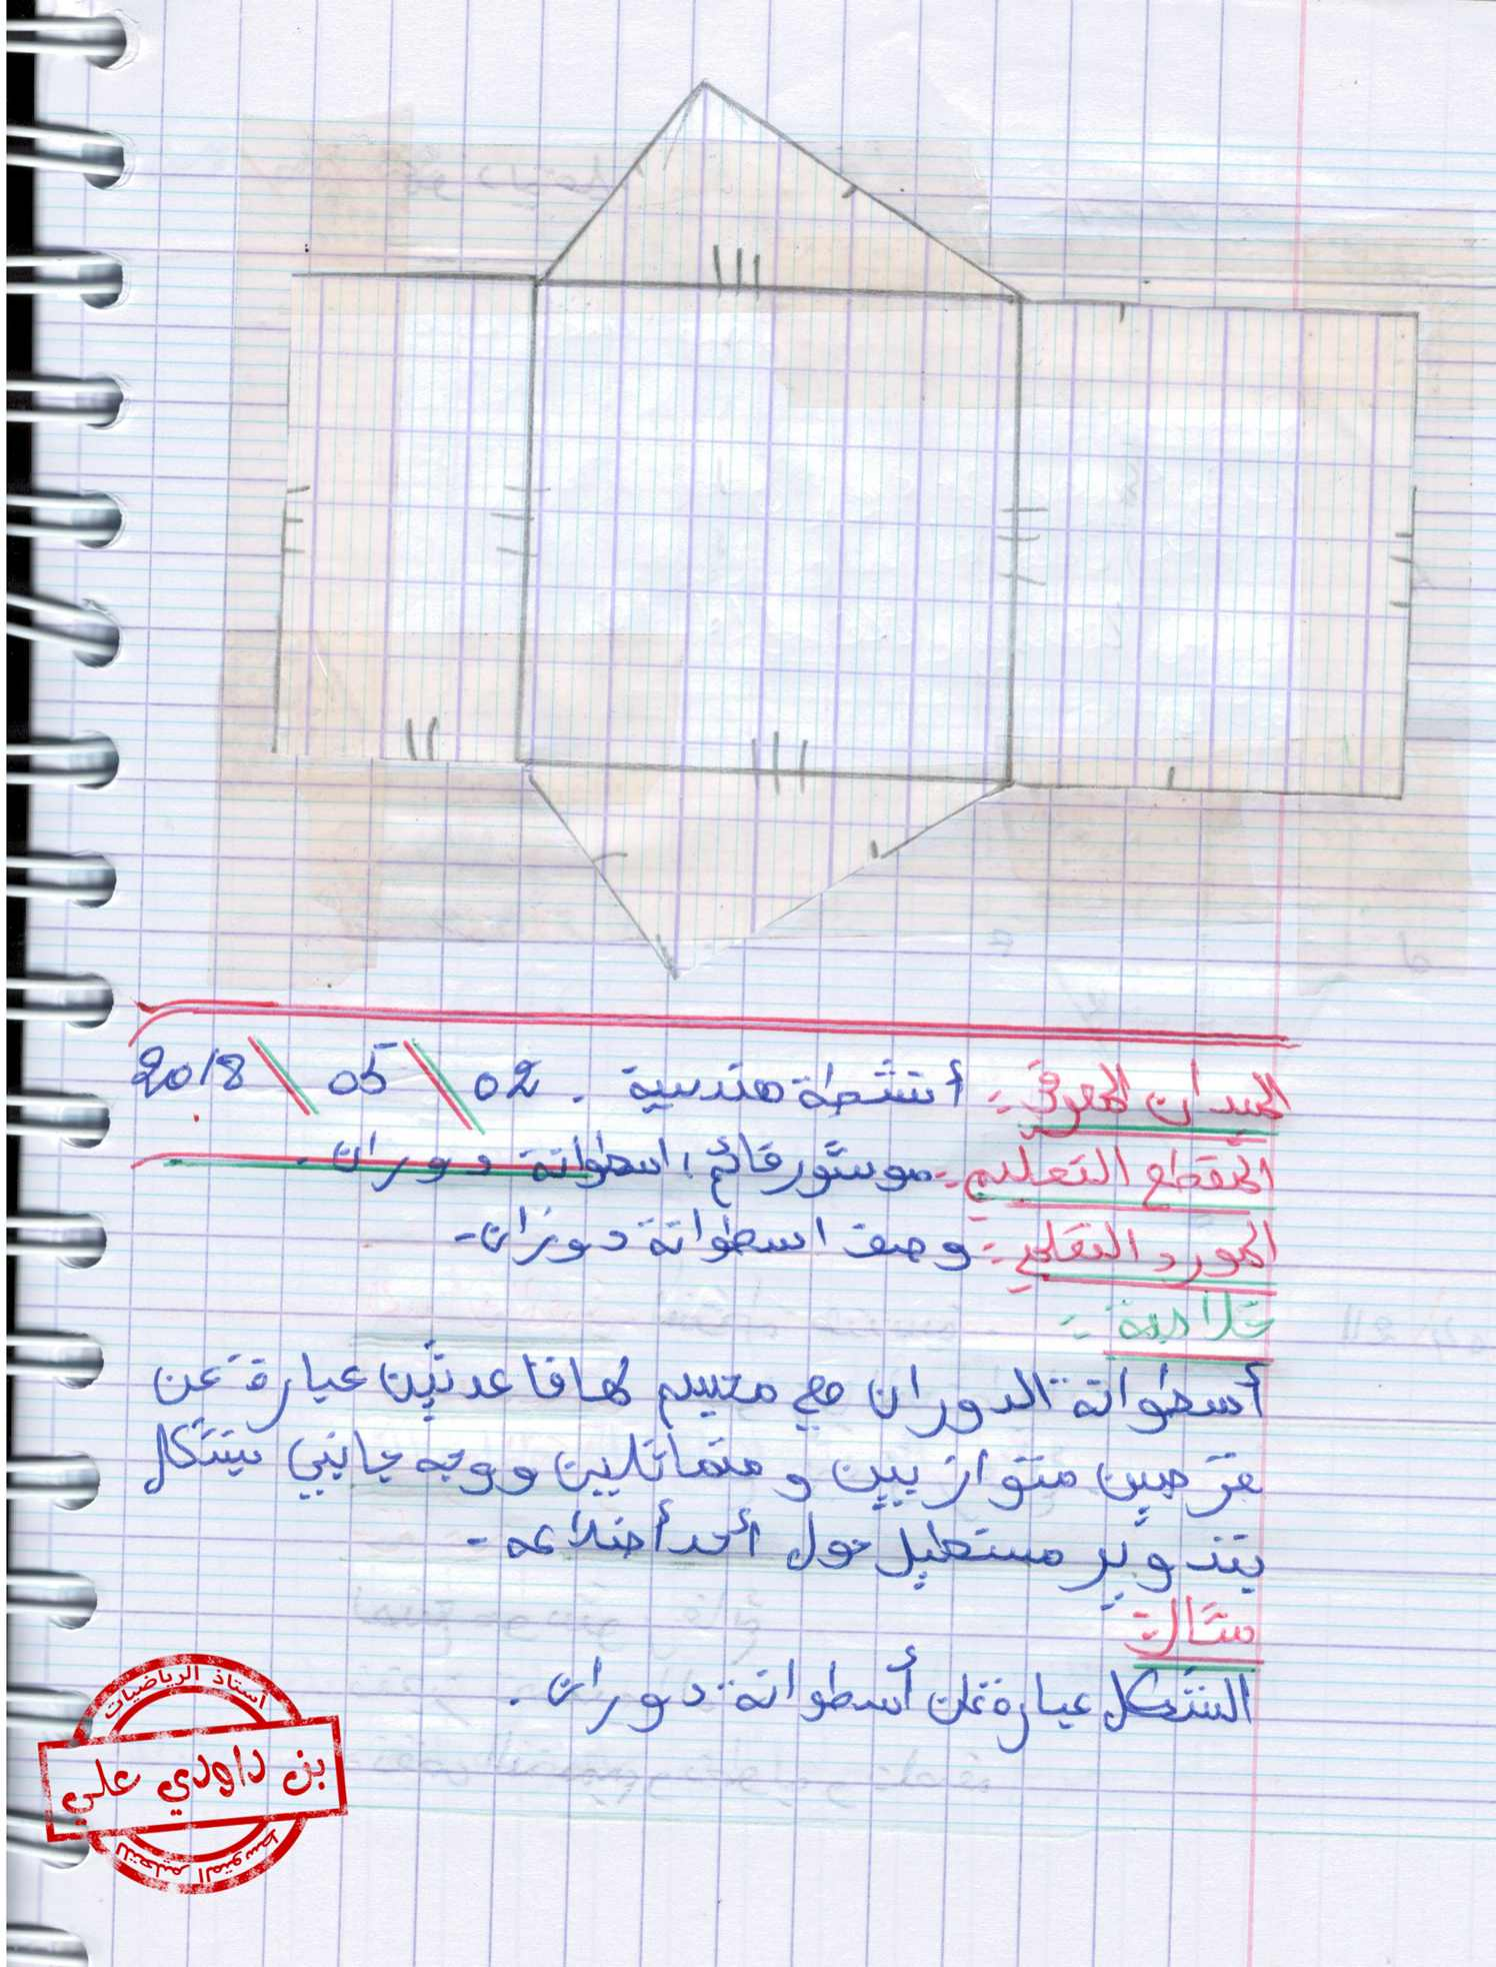 الميدان المعرفي:- أنشطة هندسية . 02 \ 05 \ 2018
المقطع التعليمي:- موشور قائم ، اسطوانة دوران .
المورد التعلمي:- وصف اسطوانة دوران -
خلاصة :-
أسطوانة الدوران هي مجسم لها قاعدتين عبارة عن
قرصين متوازيين و متماثليين و وجه جانبي يتشكل
بتدوير مستطيل حول أحد أضلاعه -
مثال :-
الشكل عبارة عن أسطوانة دوران .
أستاذ الرياضيات
بن داودي علي
للتعليم المتوسط